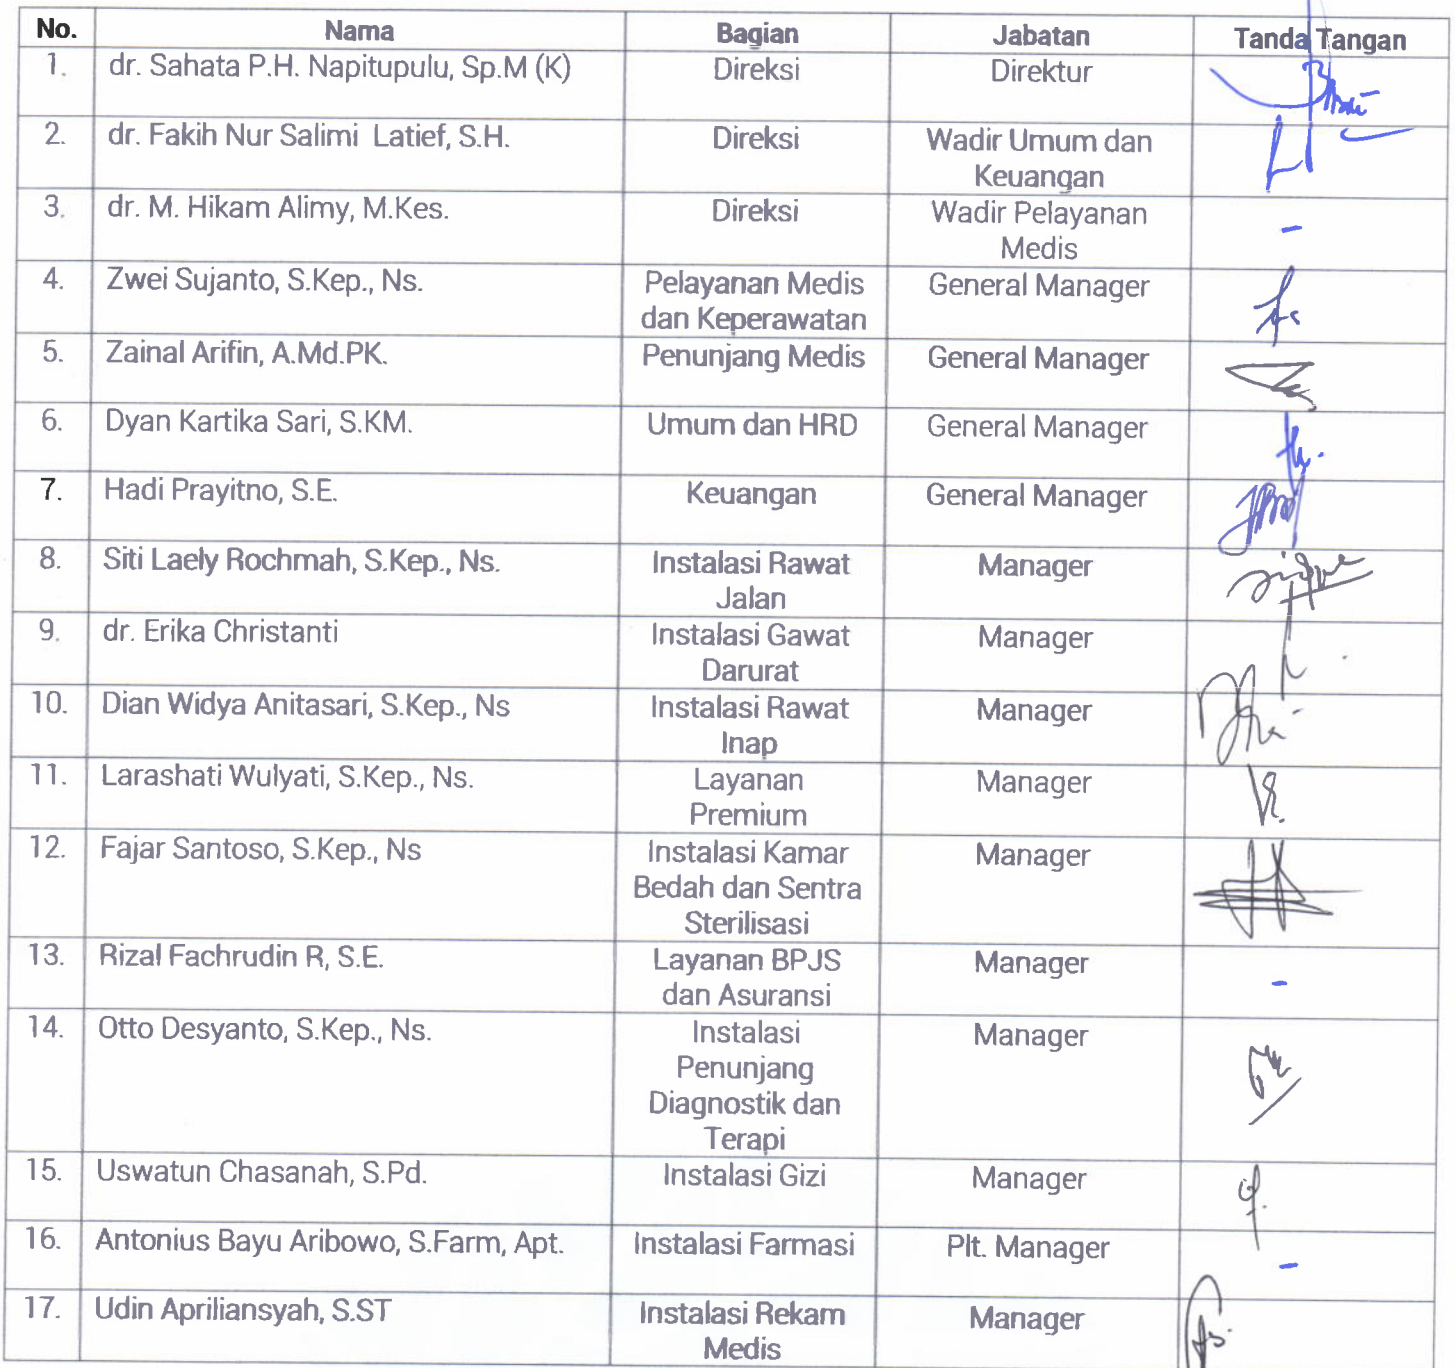 No. Nama Bagian Jabatan Tanda Tangan
1. dr. Sahata P.H. Napitupulu, Sp.M (K) Direksi Direktur
2. dr. Fakih Nur Salimi Latief, S.H. Direksi Wadir Umum dan
Keuangan
3. dr. M. Hikam Alimy, M.Kes. Direksi Wadir Pelayanan
Medis
-
4. Zwei Sujanto, S.Kep., Ns. Pelayanan Medis General Manager
dan Keperawatan
5. Zainal Arifin, A.Md.PK. Penunjang Medis General Manager
6. Dyan Kartika Sari, S.KM. Umum dan HRD General Manager
7. Hadi Prayitno, S.E. Keuangan General Manager
8. Siti Laely Rochmah, S.Kep., Ns. Instalasi Rawat Manager
Jalan
9. dr. Erika Christanti Instalasi Gawat Manager
Darurat
10. Dian Widya Anitasari, S.Kep., Ns Instalasi Rawat Manager
Inap
11. Larashati Wulyati, S.Kep., Ns. Layanan Manager
Premium
12. Fajar Santoso, S.Kep., Ns Instalasi Kamar Manager
Bedah dan Sentra
Sterilisasi
13. Rizal Fachrudin R, S.E. Layanan BPJS Manager
dan Asuransi -
14. Otto Desyanto, S.Kep., Ns. Instalasi Manager
Penunjang
Diagnostik dan
Terapi
15. Uswatun Chasanah, S.Pd. Instalasi Gizi Manager
16. Antonius Bayu Aribowo, S.Farm, Apt. Instalasi Farmasi Plt. Manager -
17. Udin Apriliansyah, S.ST Instalasi Rekam Manager
Medis